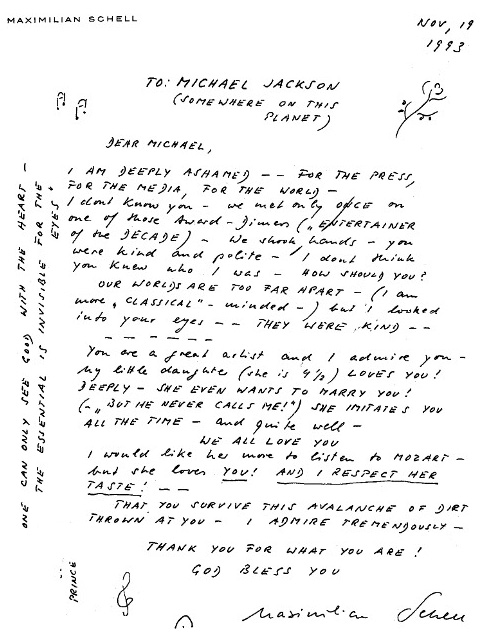 MAXIMILIAN SCHELL
NOV, 19
1993
TO: MICHAEL JACKSON
(SOMEWHERE ON THIS
PLANET)
DEAR MICHAEL,
I AM DEEPLY ASHAMED -- FOR THE PRESS,
FOR THE MEDIA, FOR THE WORLD -
I dont know you - we met only once on
one of those Award-Diners („ENTERTAINER
of the DECADE) - We shook hands - you
were kind and polite - I dont think
you knew who I was - HOW SHOULD YOU?
OUR WORLDS ARE TOO FAR APART - (I am
more „CLASSICAL"- minded -) but I looked
into your eyes -- THEY WERE KIND --
- - - - - -
You are a great artist and I admire you -
My little daughter (she is 4½) LOVES YOU!
DEEPLY - SHE EVEN WANTS TO MARRY YOU!
(-„BUT HE NEVER CALLS ME!") SHE IMITATES YOU
ALL THE TIME - and quite well -
WE ALL LOVE YOU
I would like her more to listen to MOZART -
but she loves YOU! AND I RESPECT HER
TASTE! --
THAT YOU SURVIVE THIS AVALANCHE OF DIRT
THROWN AT YOU - I ADMIRE TREMENDOUSLY -
THANK YOU FOR WHAT YOU ARE!
GOD BLESS YOU
Maximilian Schell
ONE CAN ONLY SEE GOOD WITH THE HEART -
THE ESSENTIAL IS INVISIBLE FOR THE
EYES"
PRINCE